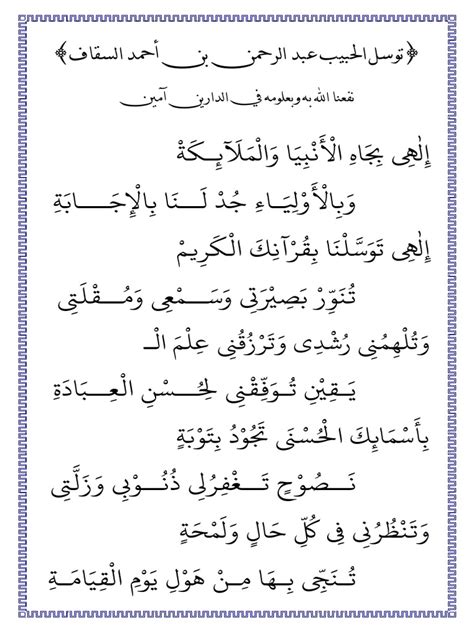 ﴿توسل الحبيب عبد الرحمن بن أحمد السقاف﴾
نفعنا الله به وبعلومه في الدارين آمين
إِلٰهِي بِجَاهِ الْأَنْبِيَا وَالْمَلَآئِكَةْ
وَبِالْأَوْلِيَـاءِ جُدْ لَـــنَا بِالْإِجَـــابَةِ
إِلٰهِي تَوَسَّلْنَا بِقُرْآنِكَ الْكَرِيمْ
تُنَوِّرْ بَصِيْرَتِي وَسَـــمْعِي وَمُـــقْلَتِي
وَتُلْهِمُنِي رُشْدِي وَتَرْزُقُنِي عِلْمَ الْـ
يَـقِيْنِ تُـوَفِّقْنِي لِحُـسْنِ الْعِـبَادَةِ
بِأَسْمَائِكَ الْحُسْنَى تَجُوْدُ بِتَوْبَةٍ
نَـــصُوْحٍ تَـــغْفِرُلِي ذُنُـــوْبِي وَزَلَّتِي
وَتَنْظُرُنِي فِي كُلِّ حَالٍ وَلَمْحَةٍ
تُـنَجِّي بِـهَا مِـنْ هَوْلِ يَوْمِ الْقِيَامَـةِ